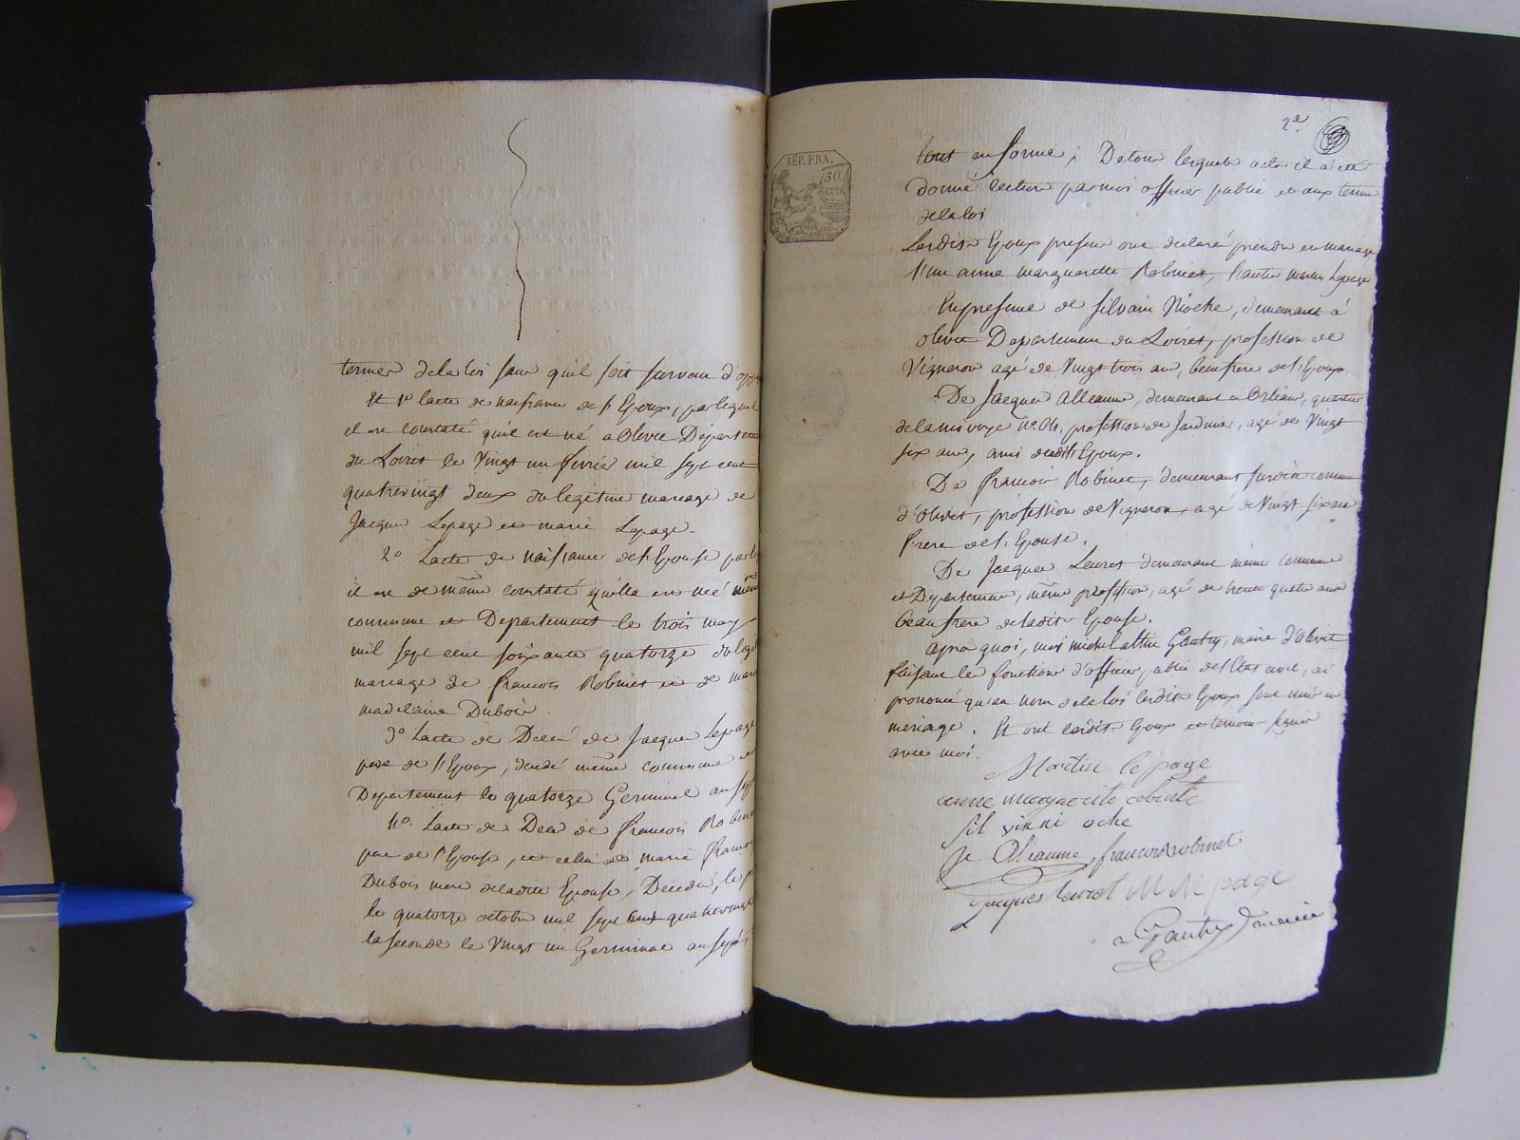 termes de la loi sans qu'il soit survenu d'oppo
Et 1º lacte de naissance de l'Epoux, par lequel
il est constaté qu'il est né a Olivet Départem
du Loiret le vingt un fevrié mil sept cent
quatrevingt deux du legitime mariage de
Jacque Lepage et marie Lepage.
2º Lacte de naissance de l'Epouse par
il est de même constaté qu'elle est née même
commune et Departement le trois may
mil sept cent soixante quatorze du legi
mariage de francois Robinet et de marie
madelaine Dubois
3º Lacte de Décé de Jacque Lepage
pere de l'Epoux, décédé même commune et
Departement le quatorze Germinal an sep
4º. Lacte de Décé de francois Robinet
pere de l'Epouse, et celui de marie
Dubois mere de ladite Epouse, Décédé, le p
le quatorze octobre mil sept cent quatrevingt
la seconde le vingt un Germinal an sept
2e
REP. FRA.
50
tout en forme; De tous lesquels actes il a été
donné lecture par moi officier public et aux termes
de la loi
Lesdits Epoux present ont declaré prendre en mariage
l'un anne marguerite Robinet, l'autre martin Lepage
En presence de Silvain Nioche, demeurant à
Olivet Departement du Loiret, profession de
Vigneron agé de Vingt trois ans, beaufrere de l'Epoux
De Jacque alleaume, demeurant a Orléans,
profession de Jardinier, agé de Vingt
six ans, ami dudit Epoux.
De francois Robinet, demeurant commune
d'Olivet, profession de Vigneron agé de Vingt six ans
frere de l'Epouse.
De Jacque Leuret demeurant même commune
et Departement, même profession, agé de trente quatre ans
beaufrere de ladite Epouse.
après quoi, moi Gautry, maire d'Olivet
faisant les fonctions d'officier public de l'Etat civil, ai
prononcé qu'au nom de la loi lesdits Epoux sont unis en
mariage. Et ont lesdits Epoux et temoins signé
avec moi.
Martin le page
anne
sil vin ni oche
J Aleaume francois robinet
Jacques leuret M M Le page
Gautry maire